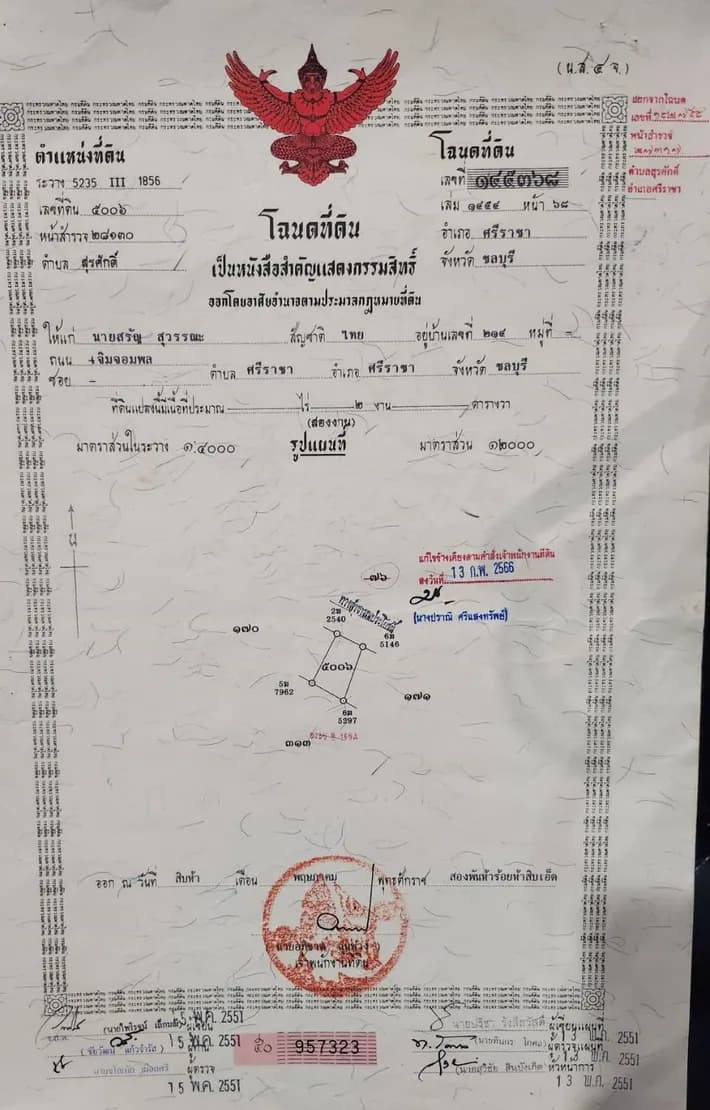 (น.ส. ๔ จ.)
แยกจากโฉนด
เลขที่
หน้าสำรวจ
ตำบลสุรศักดิ์
อำเภอศรีราชา
ตำแหน่งที่ดิน
ระวาง 5235 III 1856
เลขที่ดิน ๕๐๐๖
หน้าสำรวจ ๒๘๑๓๐
ตำบล สุรศักดิ์
โฉนดที่ดิน
เลขที่ ๑๔๕๓๖๘
เล่ม ๑๔๕๔ หน้า ๖๘
อำเภอ ศรีราชา
จังหวัด ชลบุรี
โฉนดที่ดิน
เป็นหนังสือสำคัญแสดงกรรมสิทธิ์
ออกโดยอาศัยอำนาจตามประมวลกฎหมายที่ดิน
ให้แก่ นายสรัญ สุวรรณะ สัญชาติ ไทย อยู่บ้านเลขที่ ๒๑๔ หมู่ที่ -
ถนน เจิมจอมพล
ซอย - ตำบล ศรีราชา อำเภอ ศรีราชา จังหวัด ชลบุรี
ที่ดินแปลงนี้มีเนื้อที่ประมาณ ไร่ ๒ งาน ตารางวา
(สองงาน)
มาตราส่วนในระวาง ๑:๔๐๐๐ รูปแผนที่ มาตราส่วน ๑:๒๐๐๐
น
แก้ไขข้างเคียงตามคำสั่งเจ้าพนักงานที่ดิน
ลงวันที่ 13 ก.พ. 2566
(นางปราณี ศรีแสงทรัพย์)
๗๖
ทางสาธารณประโยชน์
๑๗๐
2น
2540
6น
5146
๕๐๐๖
5น
7962
๑๗๑
6น
5297
๓๑๓
ออก ณ วันที่ สิบห้า เดือน พฤษภาคม พุทธศักราช สองพันห้าร้อยห้าสิบเอ็ด
เจ้าพนักงานที่ดิน
ผู้เขียน
15 พ.ค. 2551
ผู้ทาน
15 พ.ค. 2551
ผู้ตรวจ
15 พ.ค. 2551
957323
ผู้เขียนแผนที่
13 พ.ค. 2551
ผู้ตรวจแผนที่
13 พ.ค. 2551
13 พ.ค. 2551